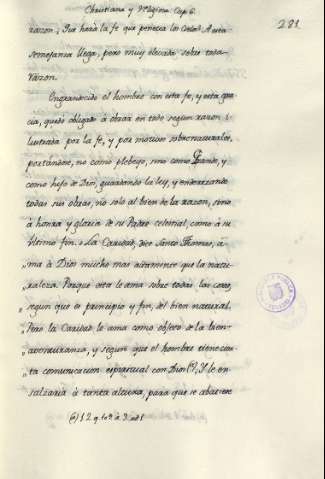 Christiana y Religiosa. Cap. 6.
281
razon; Pues hará la fe que penetra los Cielos? A esta
semejanza llega, pero muy elevada, sobre toda
razon.
Engrandecido el hombre con esta fe, y esta gra-
cia, quedó obligado à obrar en todo segun razon i-
lustrada por la fe, y por motivos sobrenaturales,
portandose, no como plebeyo, sino como Grande, y
como hijo de Dios, guardando la ley, y enderezando
todas sus obras, no solo al bien de la razon, sino
à honra y gloria de su Padre celestial, como à su
ultimo fin. La Caridad, dice Santo Thomas, a-
„ma à Dios mucho mas altamente que la natu-
„raleza. Porque esta le ama sobre todas las cosas,
„segun que es principio y fin, del bien natural.
„Pero la Caridad le ama como objeto de la bien-
„aventuranza, y segun que el hombre tiene cier-
„ta comunicacion espiritual con Dios (a). Y le en-
salzaria à tanta altura, para que se abatiere
(a) 1 2 q. 109 à 3 ad 1